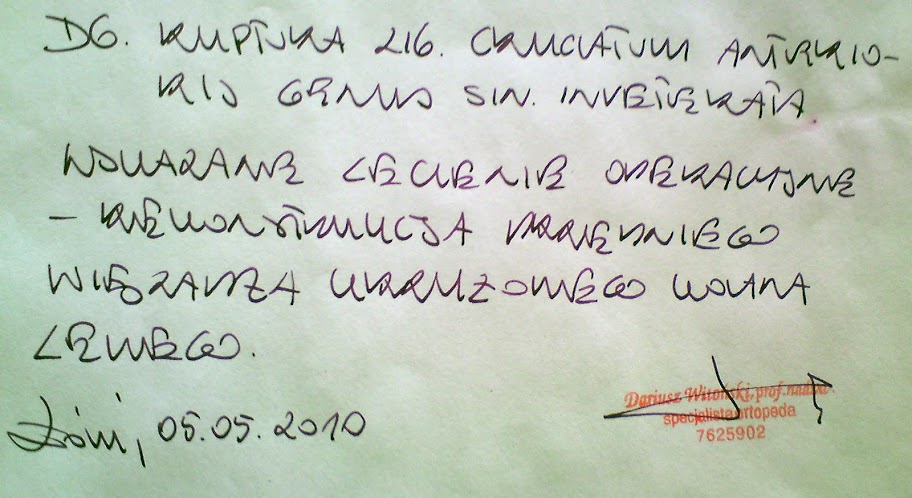 DG. RUPTURA LIG. CRUCIATUM ANTERIO-
RIS GENUS SIN. INVETERATA.
WSKAZANE LECZENIE OPERACYJNE
- REKONSTRUKCJA PRZEDNIEGO
WIĘZADŁA KRZYŻOWEGO KOLANA
LEWEGO.
Łódź, 05.05.2010
Dariusz Witoński, prof. nadzw.
specjalista ortopeda
7625902